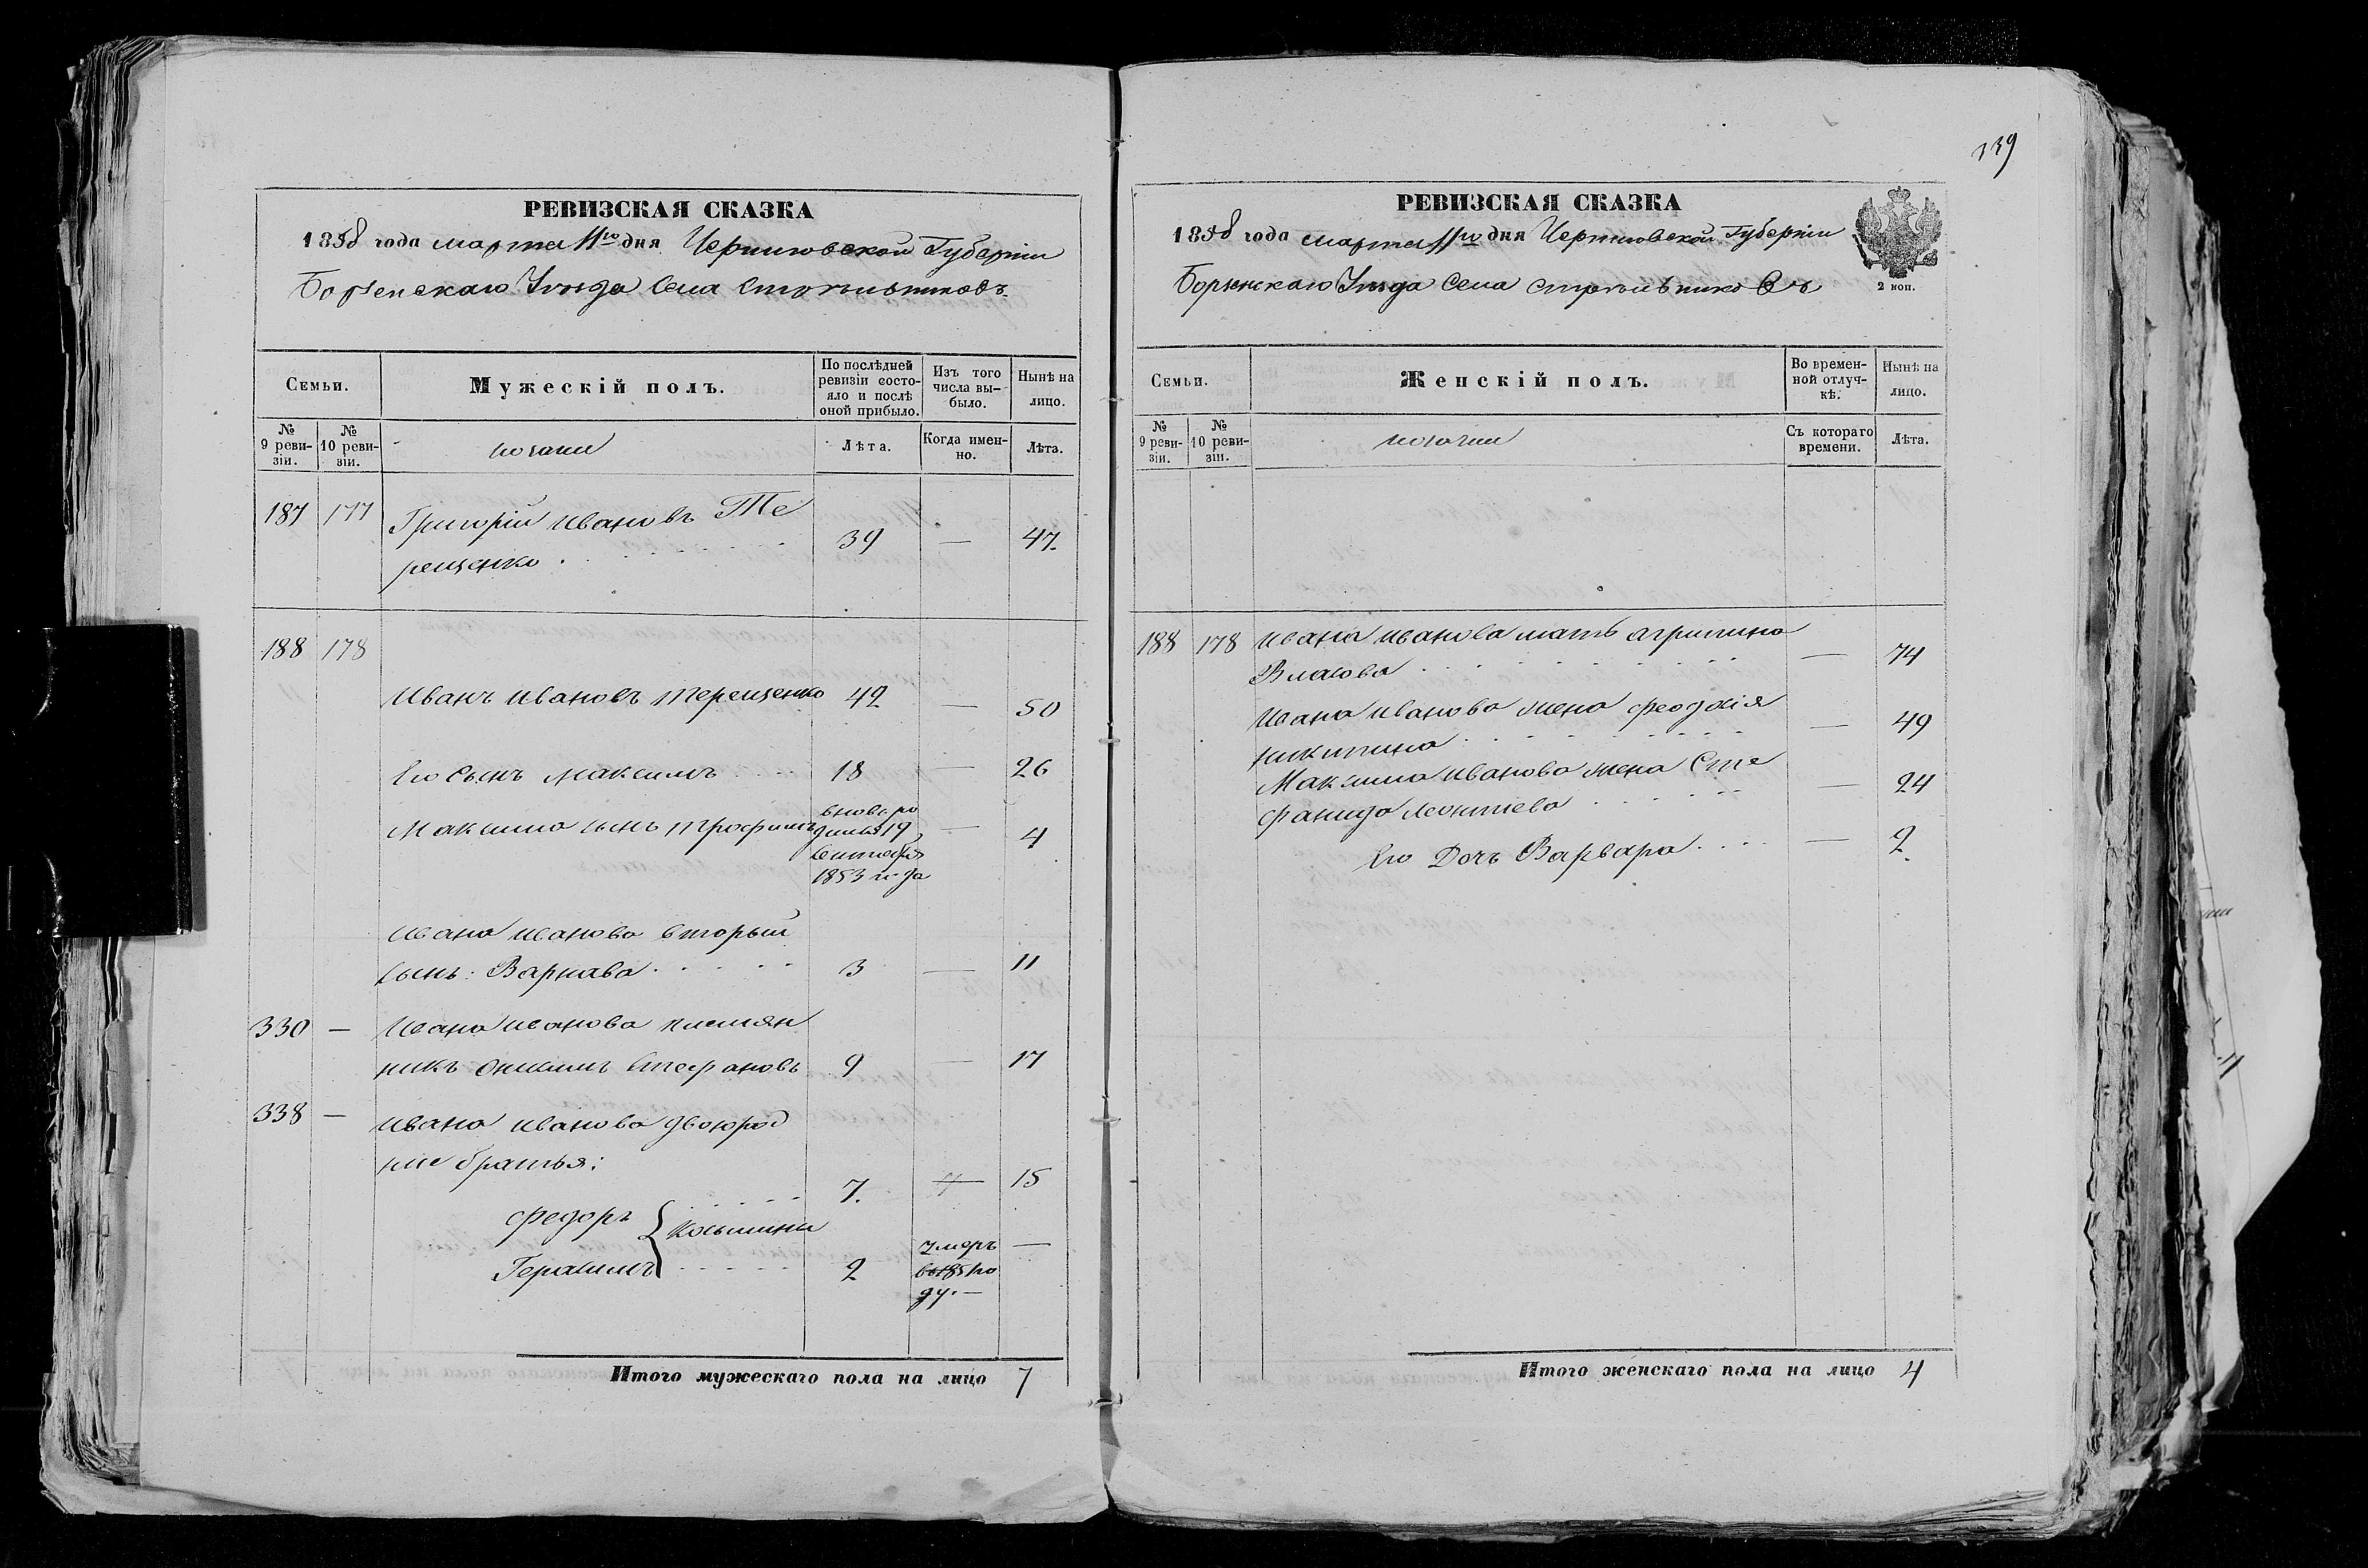 РЕВИЗСКАЯ СКАЗКА
1858 года марта 11го дня Черниговской Губернии
Борзенскаго Уѣзда Села
Семьи.
Мужескій полъ.
По послѣдней ревизіи состояло и послѣ оной прибыло.
Изъ того числа выбыло.
Нынѣ на лицо.
№ 9 ревизіи.
№ 10 ревизіи.
козаки
Лѣта.
Когда именно.
Лѣта.
187 177 Григорій Ивановъ Те
рещенко 39 — 47.
188 178
Иванъ Ивановъ Терещенко 42 — 50
Его Сынъ Максимъ 18 — 26
Максима сынъ Трофимъ вновь ро
дился 19 — 4
Сентября
1853 года
Ивана Иванова вторый
сынъ: Варнава 3 — 11
330 — Ивана Иванова племян
никъ Онисимъ Стефановъ 9 — 17
338 — Ивана Иванова двоюрод
ние братья:
Федоръ 7. — 15
Косьмины
Герасимъ 2 умеръ —
го
ду. —
Итого мужескаго пола на лицо 7
139
РЕВИЗСКАЯ СКАЗКА
1858 года марта 11го дня Черниговской Губерніи
Борзенскаго Уѣзда Села
2 коп.
Семьи.
Женскій полъ.
Во временной отлучкѣ.
Нынѣ на лицо.
№ 9 ревизіи.
№ 10 ревизіи.
козачки
Съ котораго времени.
Лѣта.
188 178 Ивана Иванова мать агрипина
Власова — 74
Ивана Иванова жена феодосія
никитина — 49
Максима Иванова жена Сте
фанида леонтиева — 24
Его Дочь Варвара — 2.
Итого женскаго пола на лицо 4